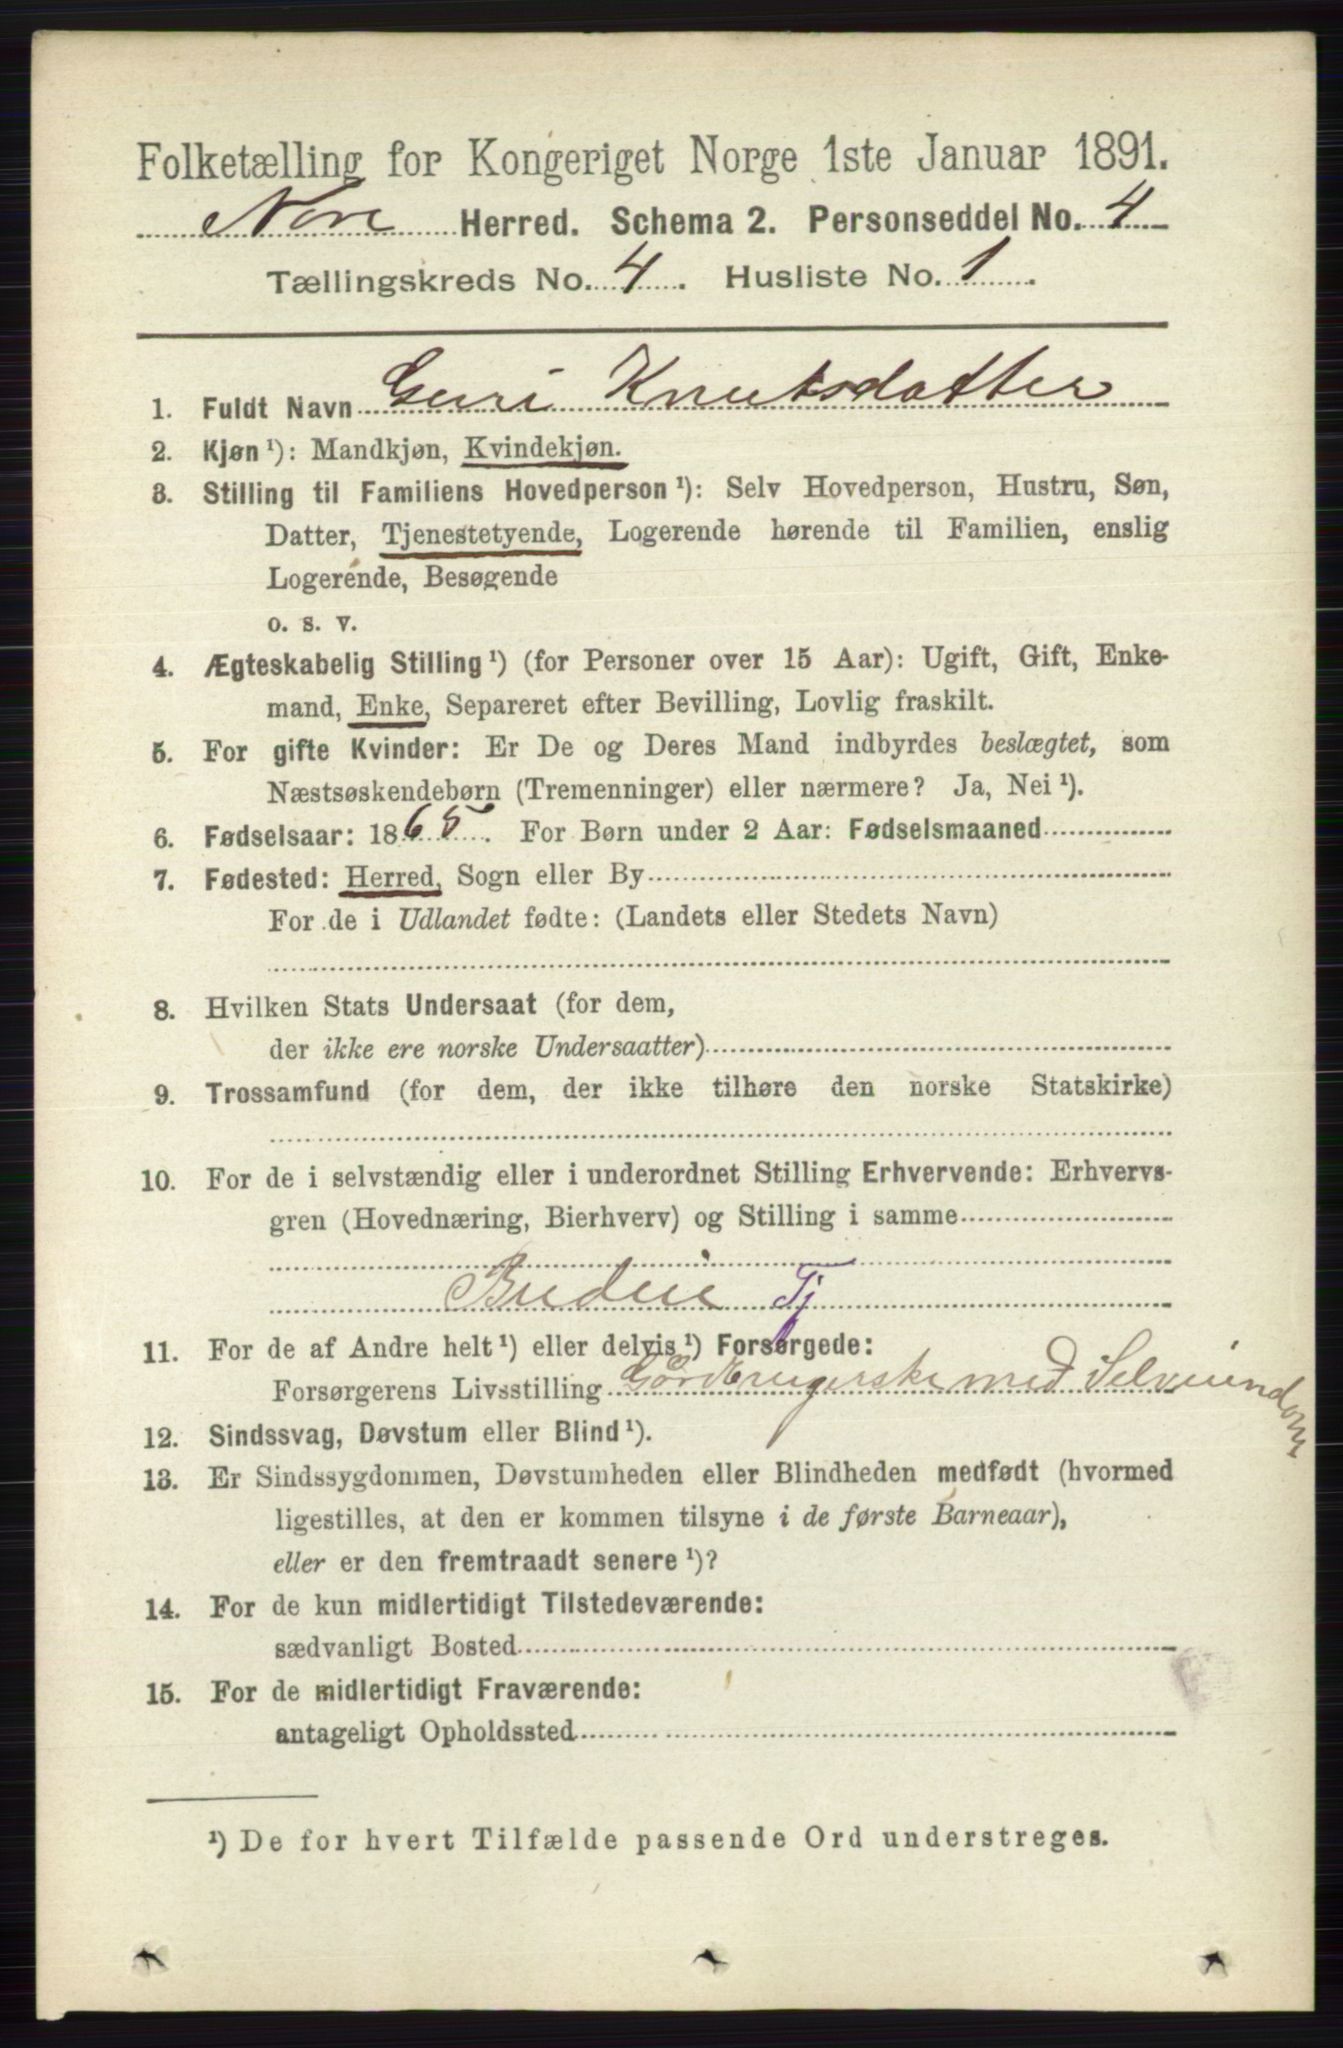 Folketælling for Kongeriget Norge 1ste Januar 1891.
Nore Herred. Schema 2. Personseddel No. 4
Tællingskreds No. 4. Husliste No. 1.
1. Fuldt Navn Guri Knutsdatter
2. Kjøn ¹): Mandkjøn, Kvindekjøn.
3. Stilling til Familiens Hovedperson ¹): Selv Hovedperson, Hustru, Søn,
Datter, Tjenestetyende, Logerende hørende til Familien, enslig
Logerende, Besøgende
o. s. v.
4. Ægteskabelig Stilling ¹) (for Personer over 15 Aar): Ugift, Gift, Enke-
mand, Enke, Separeret efter Bevilling, Lovlig fraskilt.
5. For gifte Kvinder: Er De og Deres Mand indbyrdes beslægtet, som
Næstsøskendebørn (Tremenninger) eller nærmere? Ja, Nei ¹).
6. Fødselsaar: 1865. For Børn under 2 Aar: Fødselsmaaned
7. Fødested: Herred, Sogn eller By
For de i Udlandet fødte: (Landets eller Stedets Navn)
8. Hvilken Stats Undersaat (for dem,
der ikke ere norske Undersaatter)
9. Trossamfund (for dem, der ikke tilhøre den norske Statskirke)
10. For de i selvstændig eller i underordnet Stilling Erhvervende: Erhvervs-
gren (Hovednæring, Bierhverv) og Stilling i samme
Budeie Tj
11. For de af Andre helt ¹) eller delvis ¹) Forsørgede:
Forsørgerens Livsstilling Gårdbrugerske med Selveiendom
12. Sindssvag, Døvstum eller Blind ¹).
13. Er Sindssygdommen, Døvstumheden eller Blindheden medfødt (hvormed
ligestilles, at den er kommen tilsyne i de første Barneaar),
eller er den fremtraadt senere ¹)?
14. For de kun midlertidigt Tilstedeværende:
sædvanligt Bosted
15. For de midlertidigt Fraværende:
antageligt Opholdssted
¹) De for hvert Tilfælde passende Ord understreges.